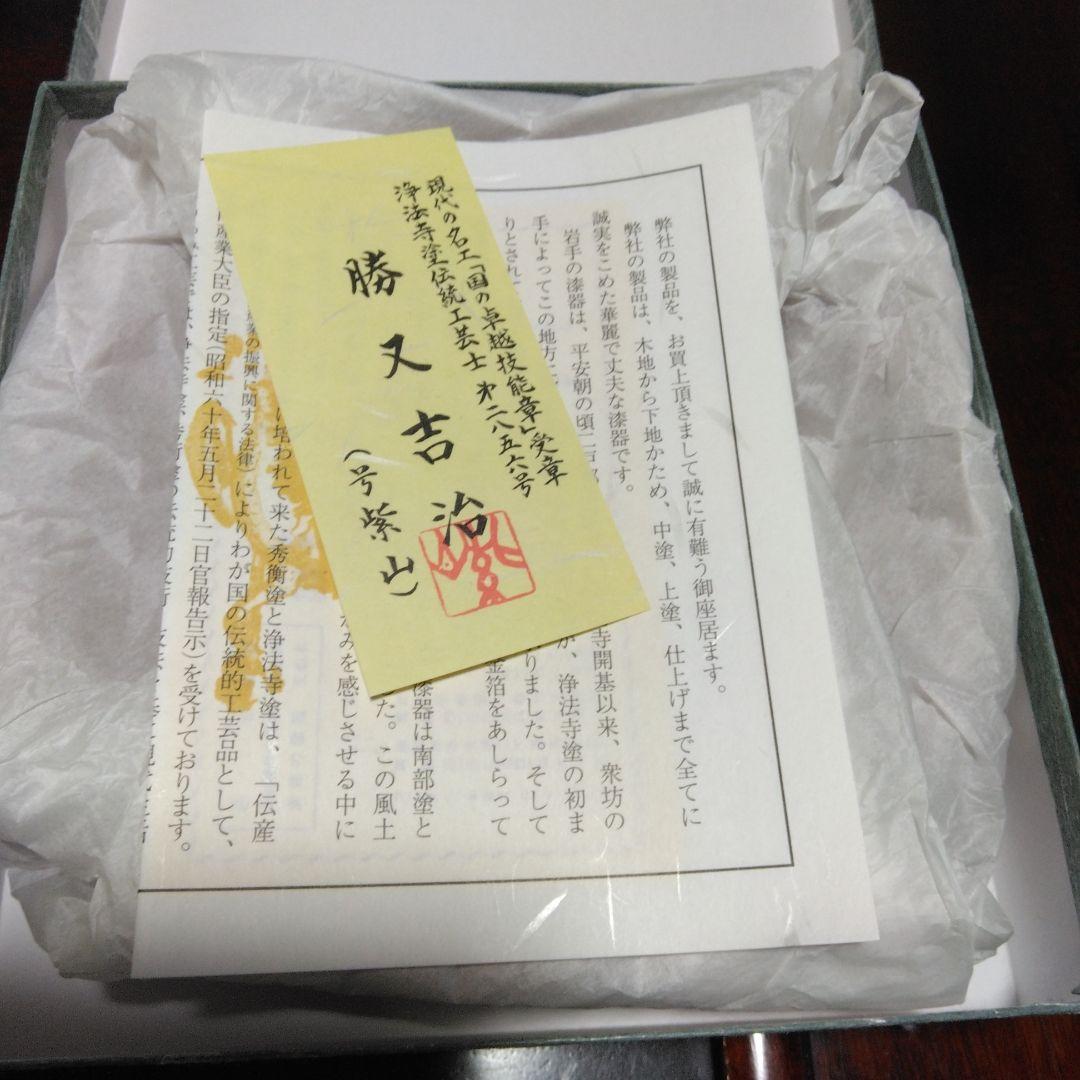 現代の名工「国の卓越技能章」受章
浄法寺塗伝統工芸士 第二八五六号
勝又吉治
(号紫山)
弊社の製品を、お買上頂きまして誠に有難う御座居ます。
弊社の製品は、木地から下地かため、中塗、上塗、仕上げまで全てに
誠実をこめた華麗で丈夫な漆器です。
岩手の漆器は、平安朝の頃二戸
寺開基以来、衆坊の
手によってこの地方に
が、浄法寺塗の初ま
りとされて
りました。そして
金箔をあしらって
漆器は南部塗と
た。この風土
かみを感じさせる中に
に培われて来た秀衡塗と浄法寺塗は、「伝産
業の振興に関する法律)によりわが国の伝統的工芸品として、
産業大臣の指定(昭和六十年五月二十二日官報告示)を受けております。